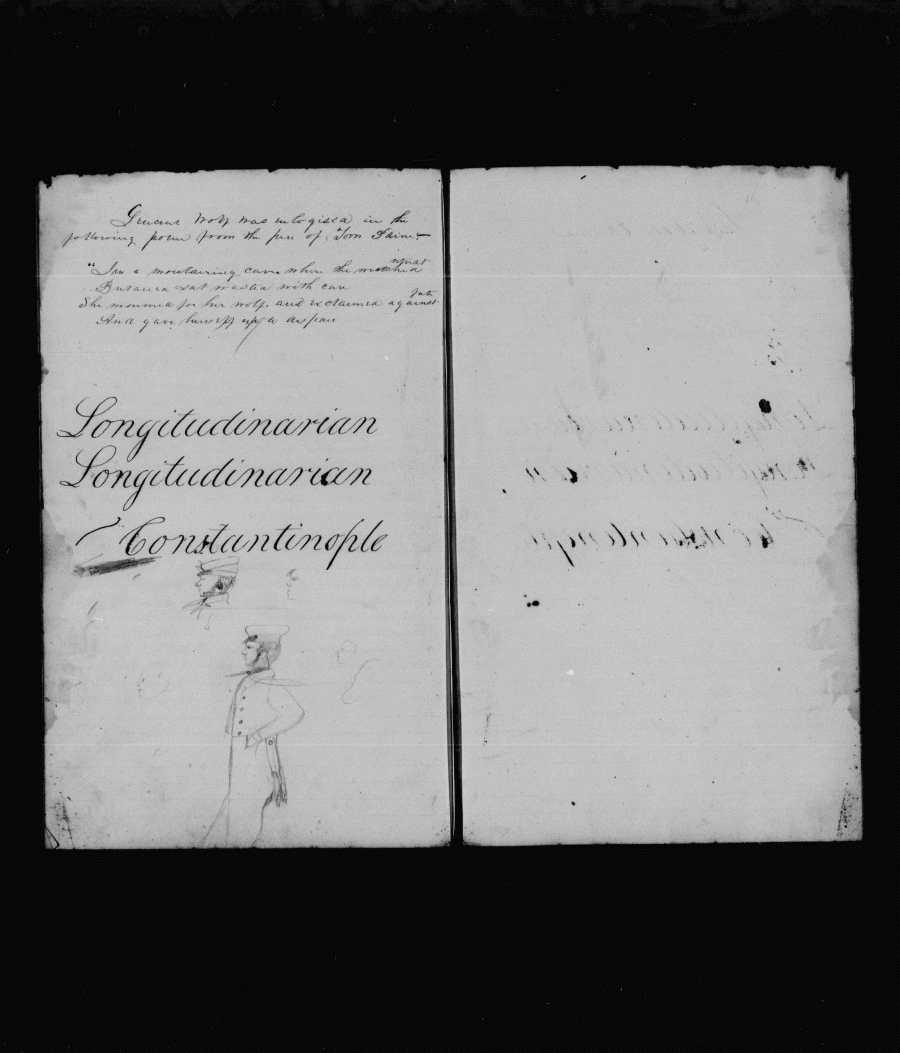 General Wolf was eulogised in the
following poem from the pen of "Tom Paine—
"In a mouldering cave where the wretched retreat
Britania sat wasted with care
She mourned for her Wolf, and exclaimed against fate
And gave herself up to despair
Longitudinarian
Longitudinarian
Constantinople